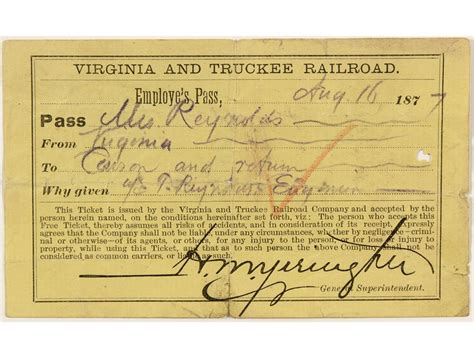 VIRGINIA AND TRUCKEE RAILROAD.
Employe's Pass, Aug 16 1877
Pass Mrs Reynolds
From Virginia
To Carson and return
Why given T. Reynolds Engineer
This Ticket is issued by the Virginia and Truckee Railroad Company and accepted by the
person herein named, on the conditions hereinafter set forth, viz: The person who accepts this
Free Ticket, thereby assumes all risks of accidents, and in consideration of its receipt, expressly
agrees that the Company shall not be liable, under any circumstances, whether by negligence—crimi-
nal or otherwise—of its agents, or others, for any injury to the person, or for loss or injury to
property, while using this Ticket, and that as to such person the above Company shall not be
considered as common carriers, or liable as such.
H M Yerington
General Superintendent.